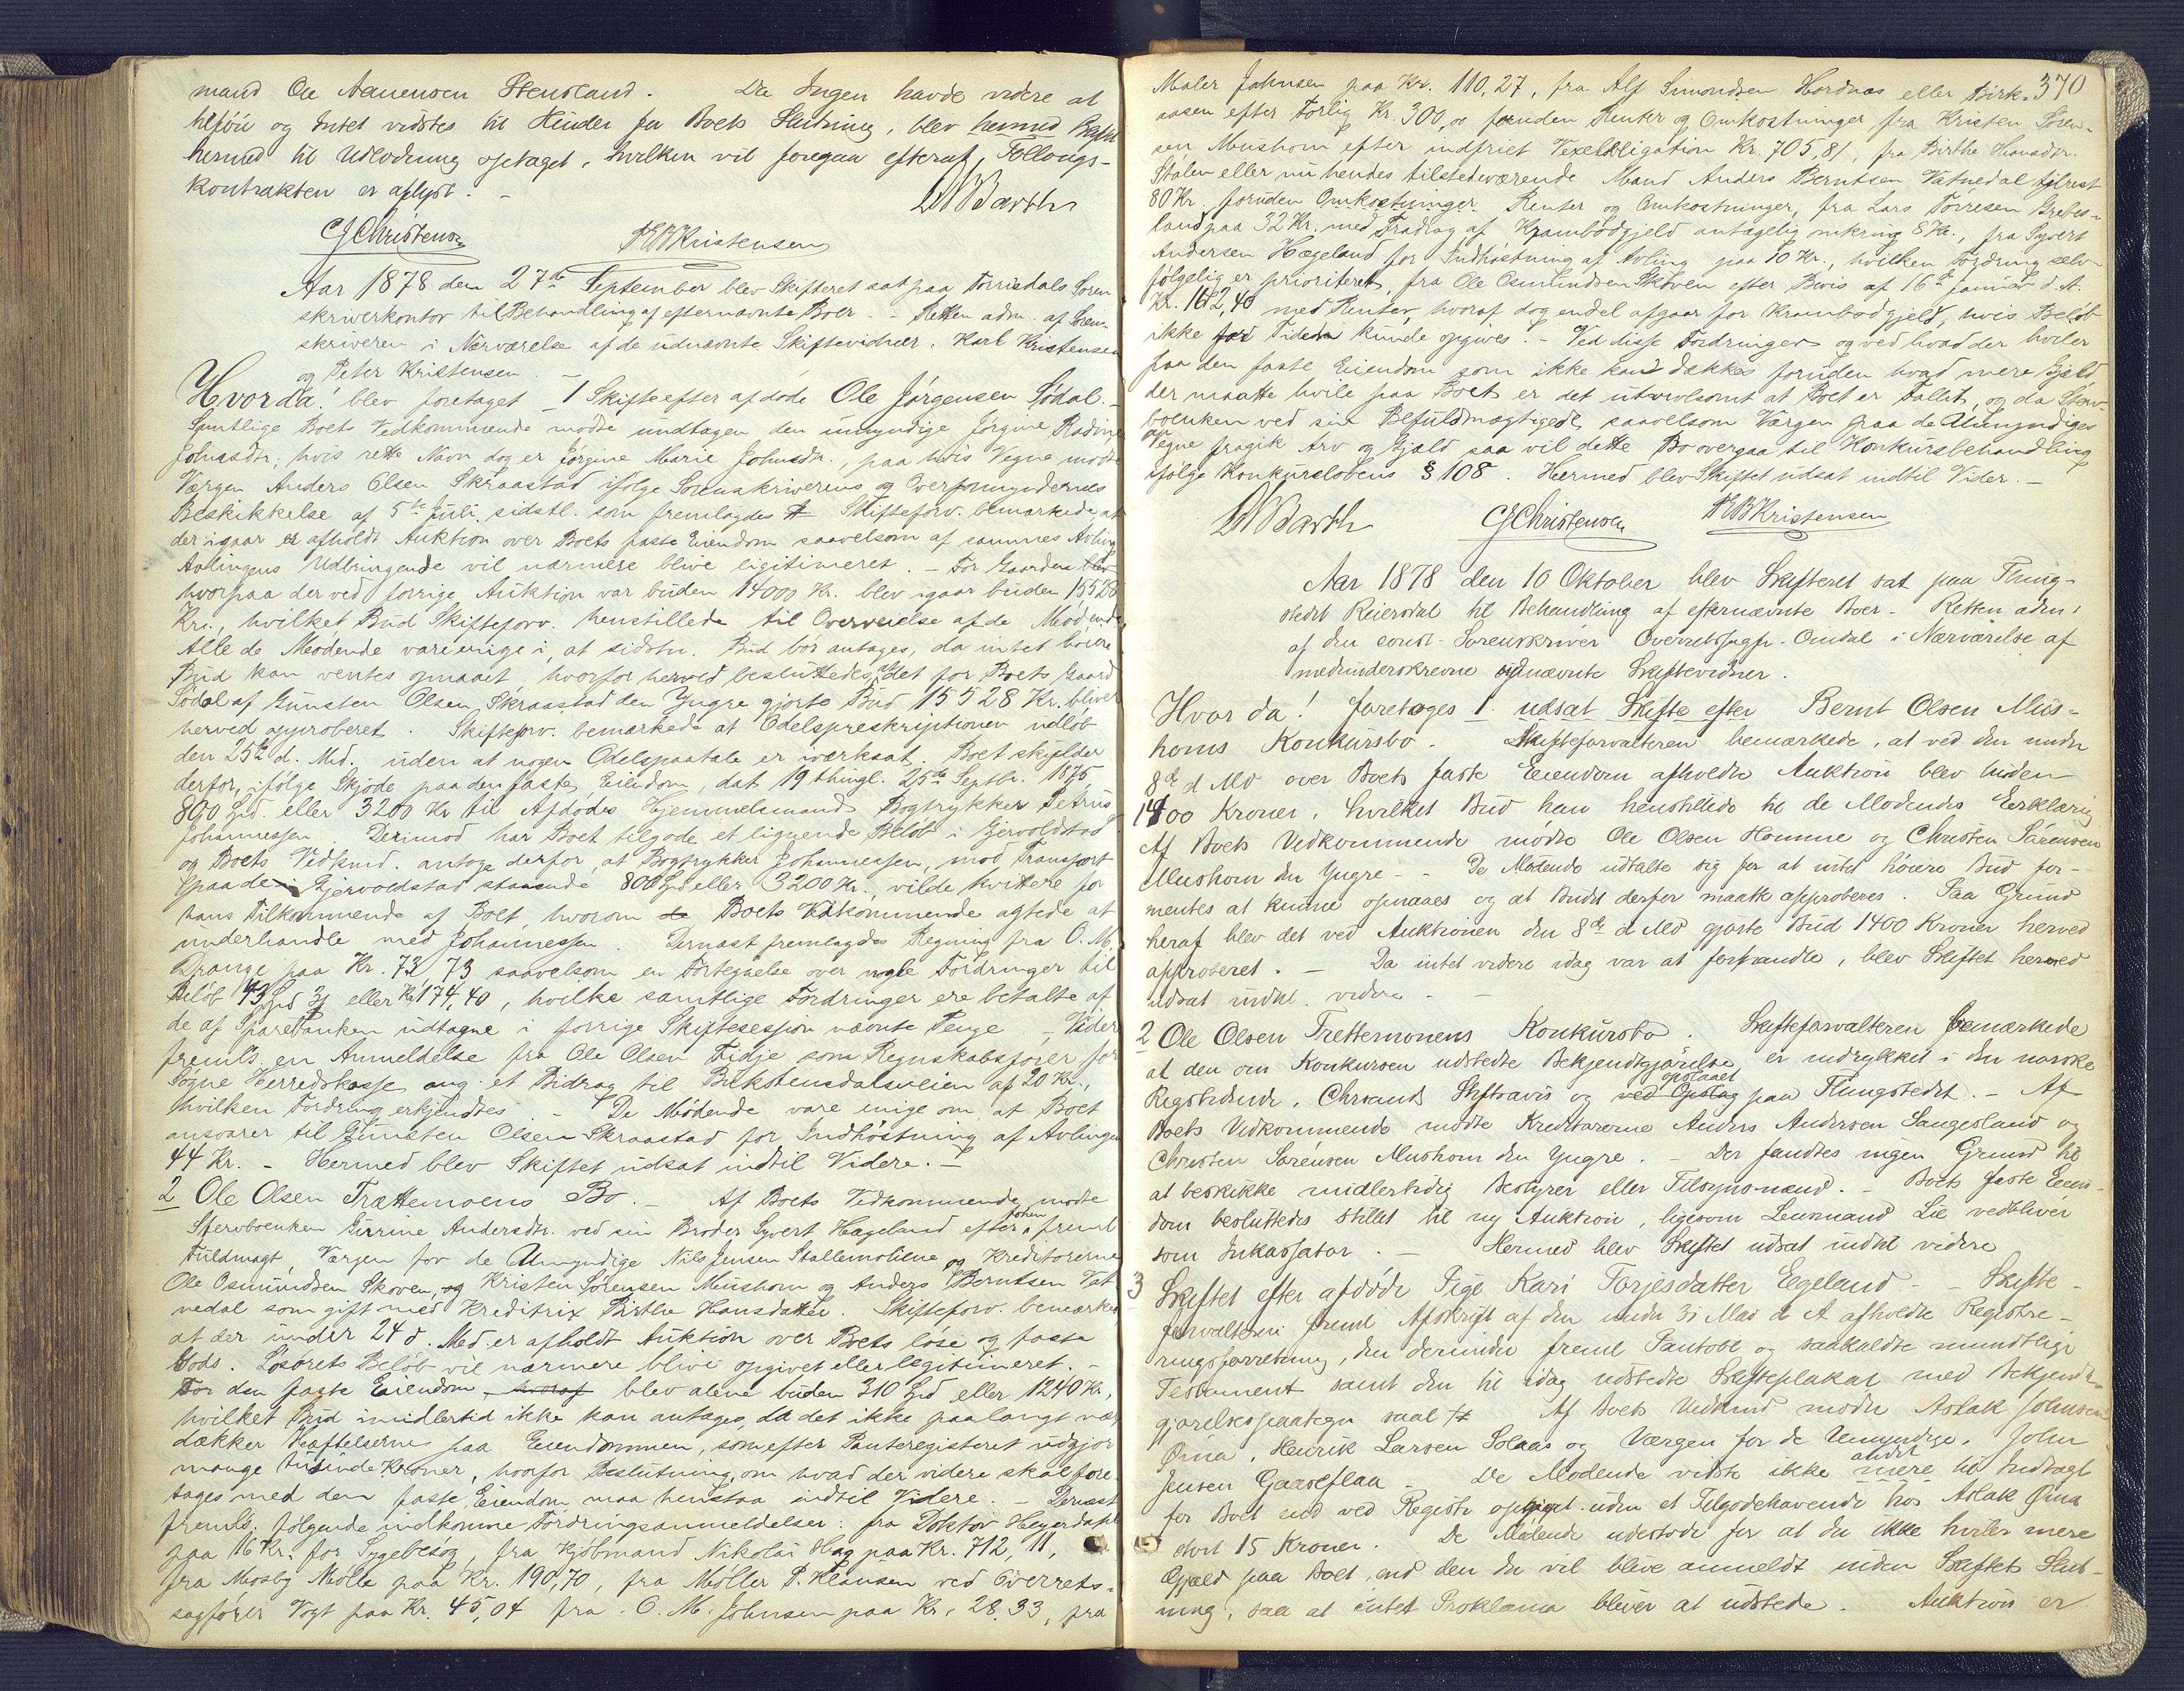 mand Ole Aanensen Stensland. Da Ingen havde videre at
tilføie og Intet vidstes til Hinder for Boets Slutning, blev
hermed til Udlodning optaget, hvilken vil foregaa efteraf, Follougs-
kontrakten er aflyst. -
Barth
CJChristensen PEBKristensen
Aar 1878 den 27de September blev Skifteret sat paa Torrisdals Soren
skriverkontor til Behandling af efternævnte Boer. - Retten adm. af Soren-
skriveren i Nærværelse af de udnævnte Skiftevidner, Karl Kristensen
og Peter Kristensen. -
Hvorda! blev foretaget 1 Skifte efter afdøde Ole Jørgensen Sødal. -
Samtlige Boets Vedkommende mødte undtagen den umyndige Jørgine Radine
Johnsdtr., hvis rette Navn dog er Jørgine Marie Johnsdtr., paa hvis Vegne mødte
Værgen Anders Olsen Skraastad ifølge Sorenskriverens og Overformyndernes
Beskikkelse af 5te Juli sidstl. som fremlagdes # Skifteforv. bemærkede at
der igaar er afholdt Auktion over Boets faste Eiendom saavelsom af sammes Avling
Avlingens Udbringende vil nærmere blive legitimeret. - For Gaarden blev
hvorpaa der ved forrige Auktion var buden 14000 Kr. blev igaar buden 15528
Kr., hvilket Bud Skifteforv. henstillede til Overveielse af de Mødende
Alle de Mødende vare enige i, at sidstn. Bud bør antages, da intet høiere
Bud kan ventes opnaaet, hvorfor herved besluttedes, at det for Boets Gaard
Sødal af Gunsten Olsen Skraastad den Yngre gjorte Bud 15528 Kr. bliver
herved approberet. Skifteforv. bemærkede at Odelspreskriptionen udløb
den 25de d. Md. uden at nogen Odelspaatale er iværksat. Boet skylder
derfor, ifølge Skjøde paa den faste Eiendom, dat. 19 thingl. 25de Septbr. 1875
800 Spd. eller 3200 Kr til Afdødes Hjemmelsmand Bogtrykker Petrus
Johannessen. Derimod har Boet tilgode et lignende Beløb i Gjervoldstad
og Boets Vedkmd. antoge derfor, at Bogtrykker Johannessen, mod Transport
paa de i Gjervoldstad staaende 800 Spd eller 3200 Kr., vilde kvittere for
hans Tilkommende af Boet, hvorom de Boets Vedkommende agtede at
underhandle med Johannessen. Dernæst fremlagdes Regning fra O. M.
Drange paa Kr. 73,73 saavelsom en Fortegnelse over nogle Fordringer til
Beløb 43 Spd 3 eller Kr 174,40, hvilke samtlige Fordringer ere betalte af
de af Sparebanken udtagne i forrige Skiftesession nævnte Penge. - Videre
fremls. en Anmeldelse fra Ole Olsen Tidje som Regnskabsfører for
Søgne Herredskasse ang. et Bidrag til Birkstensdalsveien af 20 Kr.,
hvilken Fordring erkjendtes. - De Mødende vare enige om, at Boet
ansvarer til Gunsten Olsen Skraastad for Indhøstning af Avlingen
44 Kr. - Hermed blev Skiftet udsat indtil Videre. -
2 Ole Olsen Trættemoens Bo. - Af Boets Vedkommende mødte
Stervboenken Gurine Andersdtr. ved sin Broder Syvert Hageland efter freml.
Fuldmagt, Værgen for de Umyndige Nils Jensen Stallemolilene og Kreditorerne
Ole Osmundsen Skoven, og Kristen Sørensen Mushom og Anders Berntsen Vat
nedal som gift med Kreditrix Birthe Hansdatter. Skifteforv. bemærkede
at der under 24 d. Md. er afholdt Auktion over Boets løse og faste
Gods. Løsørets Beløb vil nærmere blive opgivet eller legitimeret. -
For den faste Eiendom hvoraf blev alene buden 310 Spd eller 1240 Kr.,
hvilket Bud imidlertid ikke kan antages, da det ikke paa langt nær
dækker Heftelserne paa Eiendommen, som efter Panteregisteret udgjør
mange tusinde Kroner, hvorfor Beslutning, om hvad der videre skal fore-
tages med den faste Eiendom, maa henstaa indtil Videre. - Dernæst
fremls. følgende indkomne Fordringsanmeldelser: fra Doktor Heyerdahl
paa 16 Kr. for Sygebesøg, fra Kjøbmand Nikolai Hag paa Kr. 712,11,
fra Mosby Mølle paa Kr. 190,70, fra Møller P. Klausen ved Overrets-
sagfører Vogt paa Kr. 45,04 fra O. M. Johnsen paa Kr. 28,33, fra
370
Maler Johnsen paa Kr. 110,27, fra Alf Simondsen Hordnæs eller Birk-
aasen efter Forlig Kr. 300,00 foruden Renter og Omkostninger, fra Kristen Søren-
sen Mushom efter indfriet Vexelobligation Kr. 705,81, fra Birthe Hansdtr.
Stølen eller nu hendes tilstedeværende Mand Anders Berntsen Vatnedal tilrest
80 Kr. foruden Omkostninger. Renter og Omkostninger, fra Lars Torresen Grebes-
land paa 32 Kr. med Fradrag af Krambodgjeld antagelig omkring 8 Kr., fra Syvert
Andersen Hægeland for Indhøstning af Avling paa 10 Kr., hvilken Fordring selv-
følgelig er prioriteret, fra Ole Osmundsen Skoven efter Bevis af 16de Januar d. A.
Kr. 162,40 med Renter, hvoraf dog endel afgaar for Krambodgjeld, hvis Beløb
ikke for Tiden kunde opgives. - Ved disse Fordringer og ved hvad der hviler
paa den faste Eiendom som ikke kan dækkes foruden hvad mere Gjæld
der maatte hvile paa Boet er det utvivlsomt at Boet er Fallit, og da Sterv-
boenken ved sin Befuldmægtigede, saavelsom Værgen paa de Umyndiges
Vegne fragik Arv og Gjæld saa vil dette Bo overgaa til Konkursbehandling
ifølge Konkurslovens § 108. Hermed blev Skiftet udsat indtil Vider. -
Barth CJChristensen PEBKristensen
Aar 1878 den 10 Oktober blev Skifteret sat paa Thing-
stedet Reiersdal til Behandling af efternævnte Boer. Retten adm.
af den const. Sorenskriver Overretssagfr. Omdal i Nærværelse af
medunderskrevne udnævnte Skiftevidner.
Hvor da! foretoges 1. udsat Skifte efter Bernt Olsen Mus-
homs Konkursbo. Skifteforvalteren bemærkede, at ved den under
8de d Md over Boets faste Eiendom afholdte Auktion blev buden
1400 Kroner, hvilket Bud han henstillede til de Mødendes Erklæring
Af Boets Vedkommende mødte Ole Olsen Homme og Christen Sørensen
Mushom den Yngre - - De Mødende udtalte sig for at intet høiere Bud for-
mentes at kunne opnaaes og at Budet derfor maatte approberes. Paa Grund
heraf blev det ved Auktionen den 8de d Md gjorte Bud 1400 Kroner herved
approberet. - Da intet videre idag var at forhandle, blev Skiftet hermed
udsat indtil videre - -
2 Ole Olsen Trettemonens Konkursbo. Skifteforvalteren bemærkede
at den om Konkursen udstedte Bekjendtgjørelse er indrykket i den norske
Rigstidende, Chrsands Stiftsavis og ved Opslag opslaaet paa Thingstedet. - Af
Boets Vedkommende mødte Kreditorerne Anders Andersen Saugesland og
Christen Sørensen Mushom den Yngre. - Der fandtes ingen Grund til
at beskikke midlertidig Bestyrer eller Tilsynsmænd. - Boets faste Eien-
dom besluttedes stillet til ny Auktion, ligesom Lensmand Lie vedbliver
som Inkassator. - Hermed blev Skiftet udsat indtil videre
3 Skiftet efter afdøde Pige Kari Torjesdatter Eegeland - - Skifte-
forvalteren freml Afskrift af den under 31 Mai d A afholdte Registre-
ringsforretning, den derunder freml Pantobl og saakaldte mundtlige
Testament samt den til idag udstedte Skifteplakat med Bekjendt-
gjørelsespaategn saal # Af Boets Vedkmd mødte Aslak Johnsen
Øina, Henrik Larsen Solaas og Værgen for de Umyndige, John
Jensen Gaaseflaa - De Mødende vidste ikke mere andet til Indtægt
for Boet end ved Registr opgivet uden et Tilgodehavende hos Aslak Øina
stort 15 Kroner. De Mødende udestode for at der ikke hviler mere
Gjæld paa Boet, end den der vil blive anmeldt inden Skiftets Slut-
ning, saa at intet Proklama bliver at udstede. Auktion er